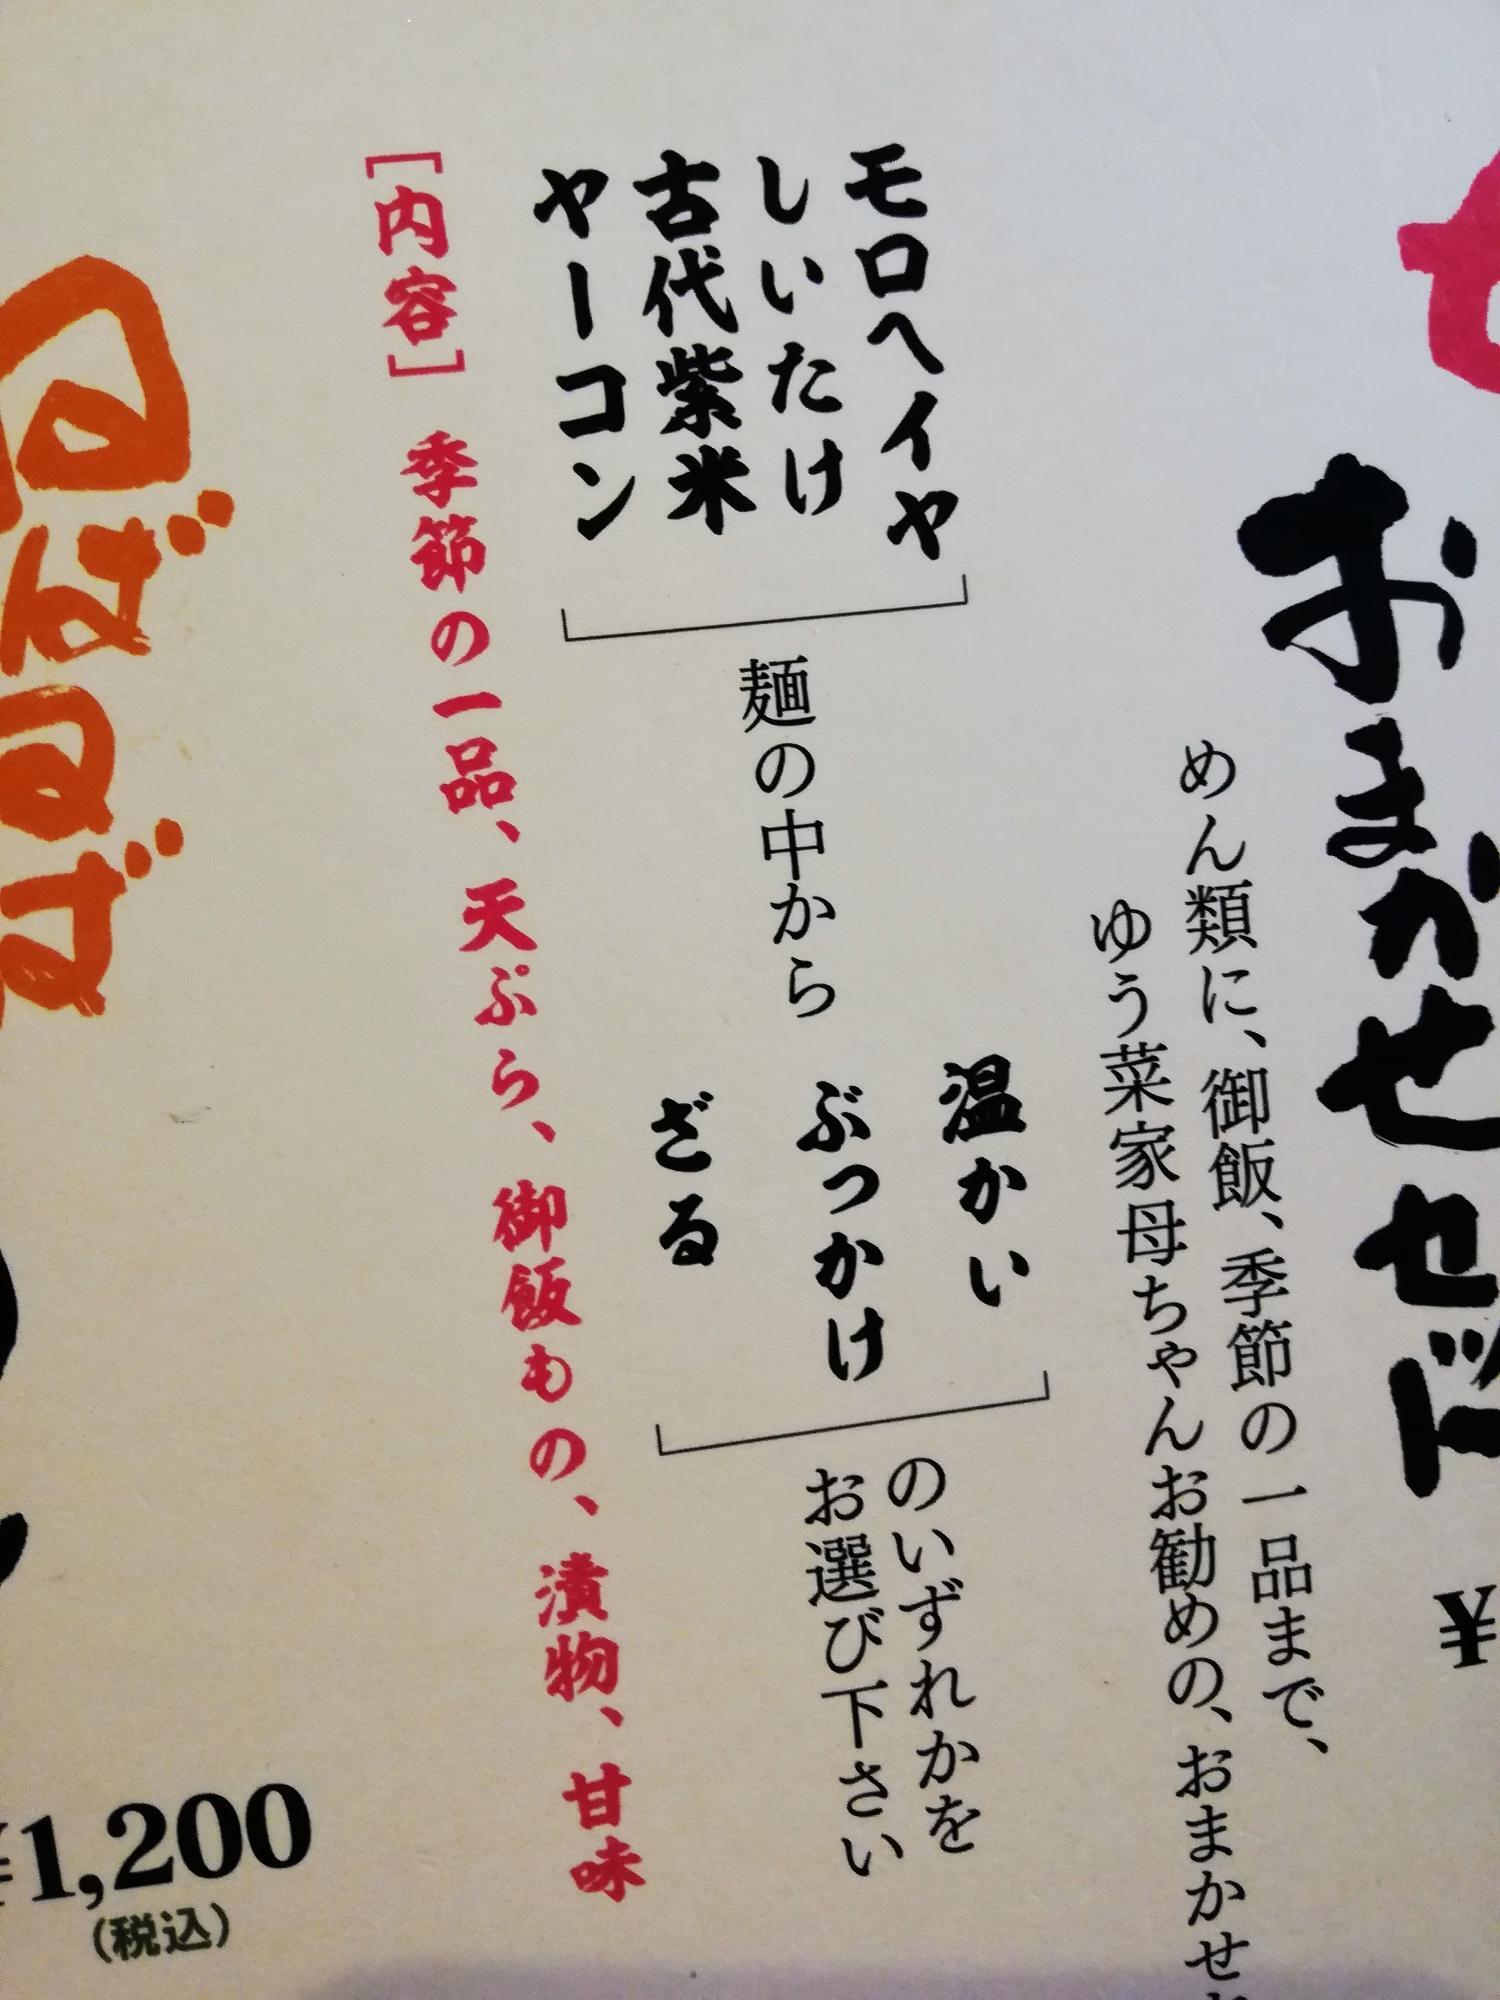 おまかせセット
¥
めん類に、御飯、季節の一品まで、
ゆう菜家母ちゃんお勧めの、おまかせ
モロヘイヤ
しいたけ
古代紫米
ヤーコン
麺の中から
温かい
ぶっかけ
ざる
のいずれかを
お選び下さい
[内容] 季節の一品、天ぷら、御飯もの、漬物、甘味
ねばねば
¥1,200
(税込)